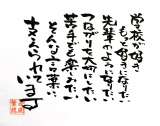 学校が好き
もっと好きになりたい
先輩のようになりたい
つながりを大切にしたい
苦手でも楽しみたい
そんな言葉に
支えられて
います